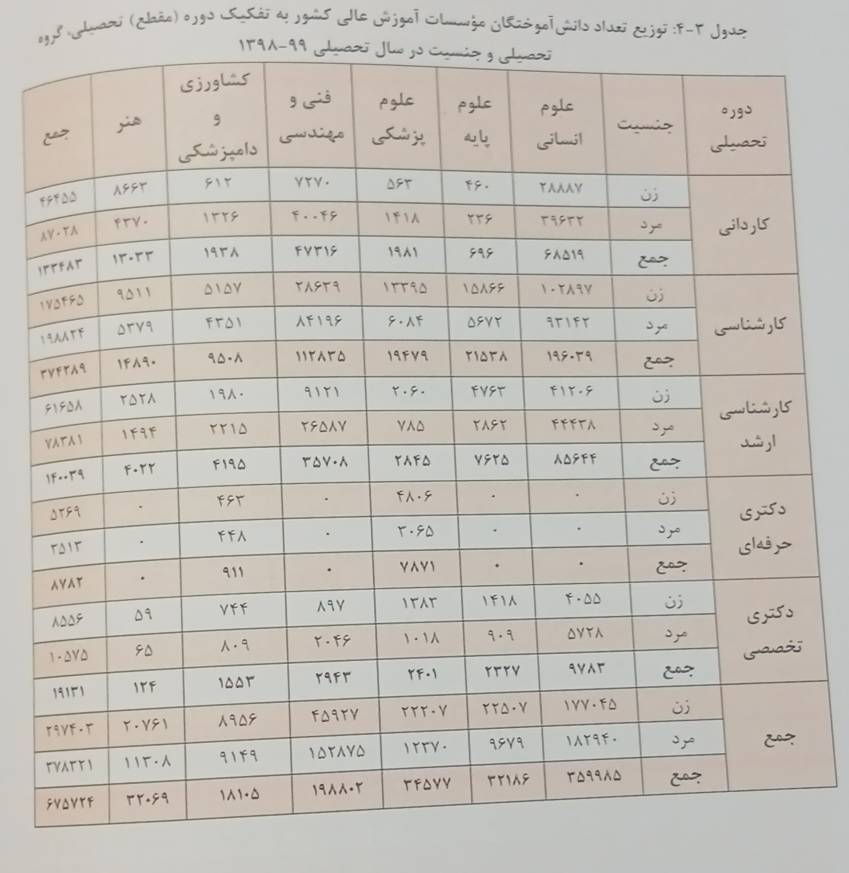 جدول ۳-۴: توزیع تعداد دانش‌آموختگان مؤسسات آموزش عالی کشور به تفکیک دوره (مقطع) تحصیلی، گروه
تحصیلی و جنسیت در سال تحصیلی ۹۹-۱۳۹۸
دوره تحصیلی جنسیت علوم انسانی علوم پایه علوم پزشکی فنی و مهندسی کشاورزی و دامپزشکی هنر جمع
کاردانی
زن ۲۸۸۸۷ ۴۶۰ ۵۶۳ ۷۲۷۰ ۶۱۲ ۸۶۶۳ ۴۶۴۵۵
مرد ۳۹۶۳۲ ۲۳۶ ۱۴۱۸ ۴۰۰۴۶ ۱۳۲۶ ۴۳۷۰ ۸۷۰۲۸
جمع ۶۸۵۱۹ ۶۹۶ ۱۹۸۱ ۴۷۳۱۶ ۱۹۳۸ ۱۳۰۳۳ ۱۳۳۴۸۳
کارشناسی
زن ۱۰۲۸۹۷ ۱۵۸۶۶ ۱۳۳۹۵ ۲۸۶۳۹ ۵۱۵۷ ۹۵۱۱ ۱۷۵۴۶۵
مرد ۹۳۱۴۲ ۵۶۷۲ ۶۰۸۴ ۸۴۱۹۶ ۴۳۵۱ ۵۳۷۹ ۱۹۸۸۲۴
جمع ۱۹۶۰۳۹ ۲۱۵۳۸ ۱۹۴۷۹ ۱۱۲۸۳۵ ۹۵۰۸ ۱۴۸۹۰ ۳۷۴۲۸۹
کارشناسی ارشد
زن ۴۱۲۰۶ ۴۷۶۳ ۲۰۶۰ ۹۱۲۱ ۱۹۸۰ ۲۵۲۸ ۶۱۶۵۸
مرد ۴۴۴۳۸ ۲۸۶۲ ۷۸۵ ۲۶۵۸۷ ۲۲۱۵ ۱۴۹۴ ۷۸۳۸۱
جمع ۸۵۶۴۴ ۷۶۲۵ ۲۸۴۵ ۳۵۷۰۸ ۴۱۹۵ ۴۰۲۲ ۱۴۰۰۳۹
دکتری حرفه‌ای
زن ۰ ۰ ۴۸۰۶ ۰ ۴۶۳ ۰ ۵۲۶۹
مرد ۰ ۰ ۳۰۶۵ ۰ ۴۴۸ ۰ ۳۵۱۳
جمع ۰ ۰ ۷۸۷۱ ۰ ۹۱۱ ۰ ۸۷۸۲
دکتری تخصصی
زن ۴۰۵۵ ۱۴۱۸ ۱۳۸۳ ۸۹۷ ۷۴۴ ۵۹ ۸۵۵۶
مرد ۵۷۲۸ ۹۰۹ ۱۰۱۸ ۲۰۴۶ ۸۰۹ ۶۵ ۱۰۵۷۵
جمع ۹۷۸۳ ۲۳۲۷ ۲۴۰۱ ۲۹۴۳ ۱۵۵۳ ۱۲۴ ۱۹۱۳۱
جمع
زن ۱۷۷۰۴۵ ۲۲۵۰۷ ۲۲۲۰۷ ۴۵۹۲۷ ۸۹۵۶ ۲۰۷۶۱ ۲۹۷۴۰۳
مرد ۱۸۲۹۴۰ ۹۶۷۹ ۱۲۳۷۰ ۱۵۲۸۷۵ ۹۱۴۹ ۱۱۳۰۸ ۳۷۸۳۲۱
جمع ۳۵۹۹۸۵ ۳۲۱۸۶ ۳۴۵۷۷ ۱۹۸۸۰۲ ۱۸۱۰۵ ۳۲۰۶۹ ۶۷۵۷۲۴